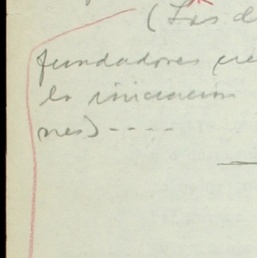 (Los d
fundadores cre
la iniciación
nes) ----